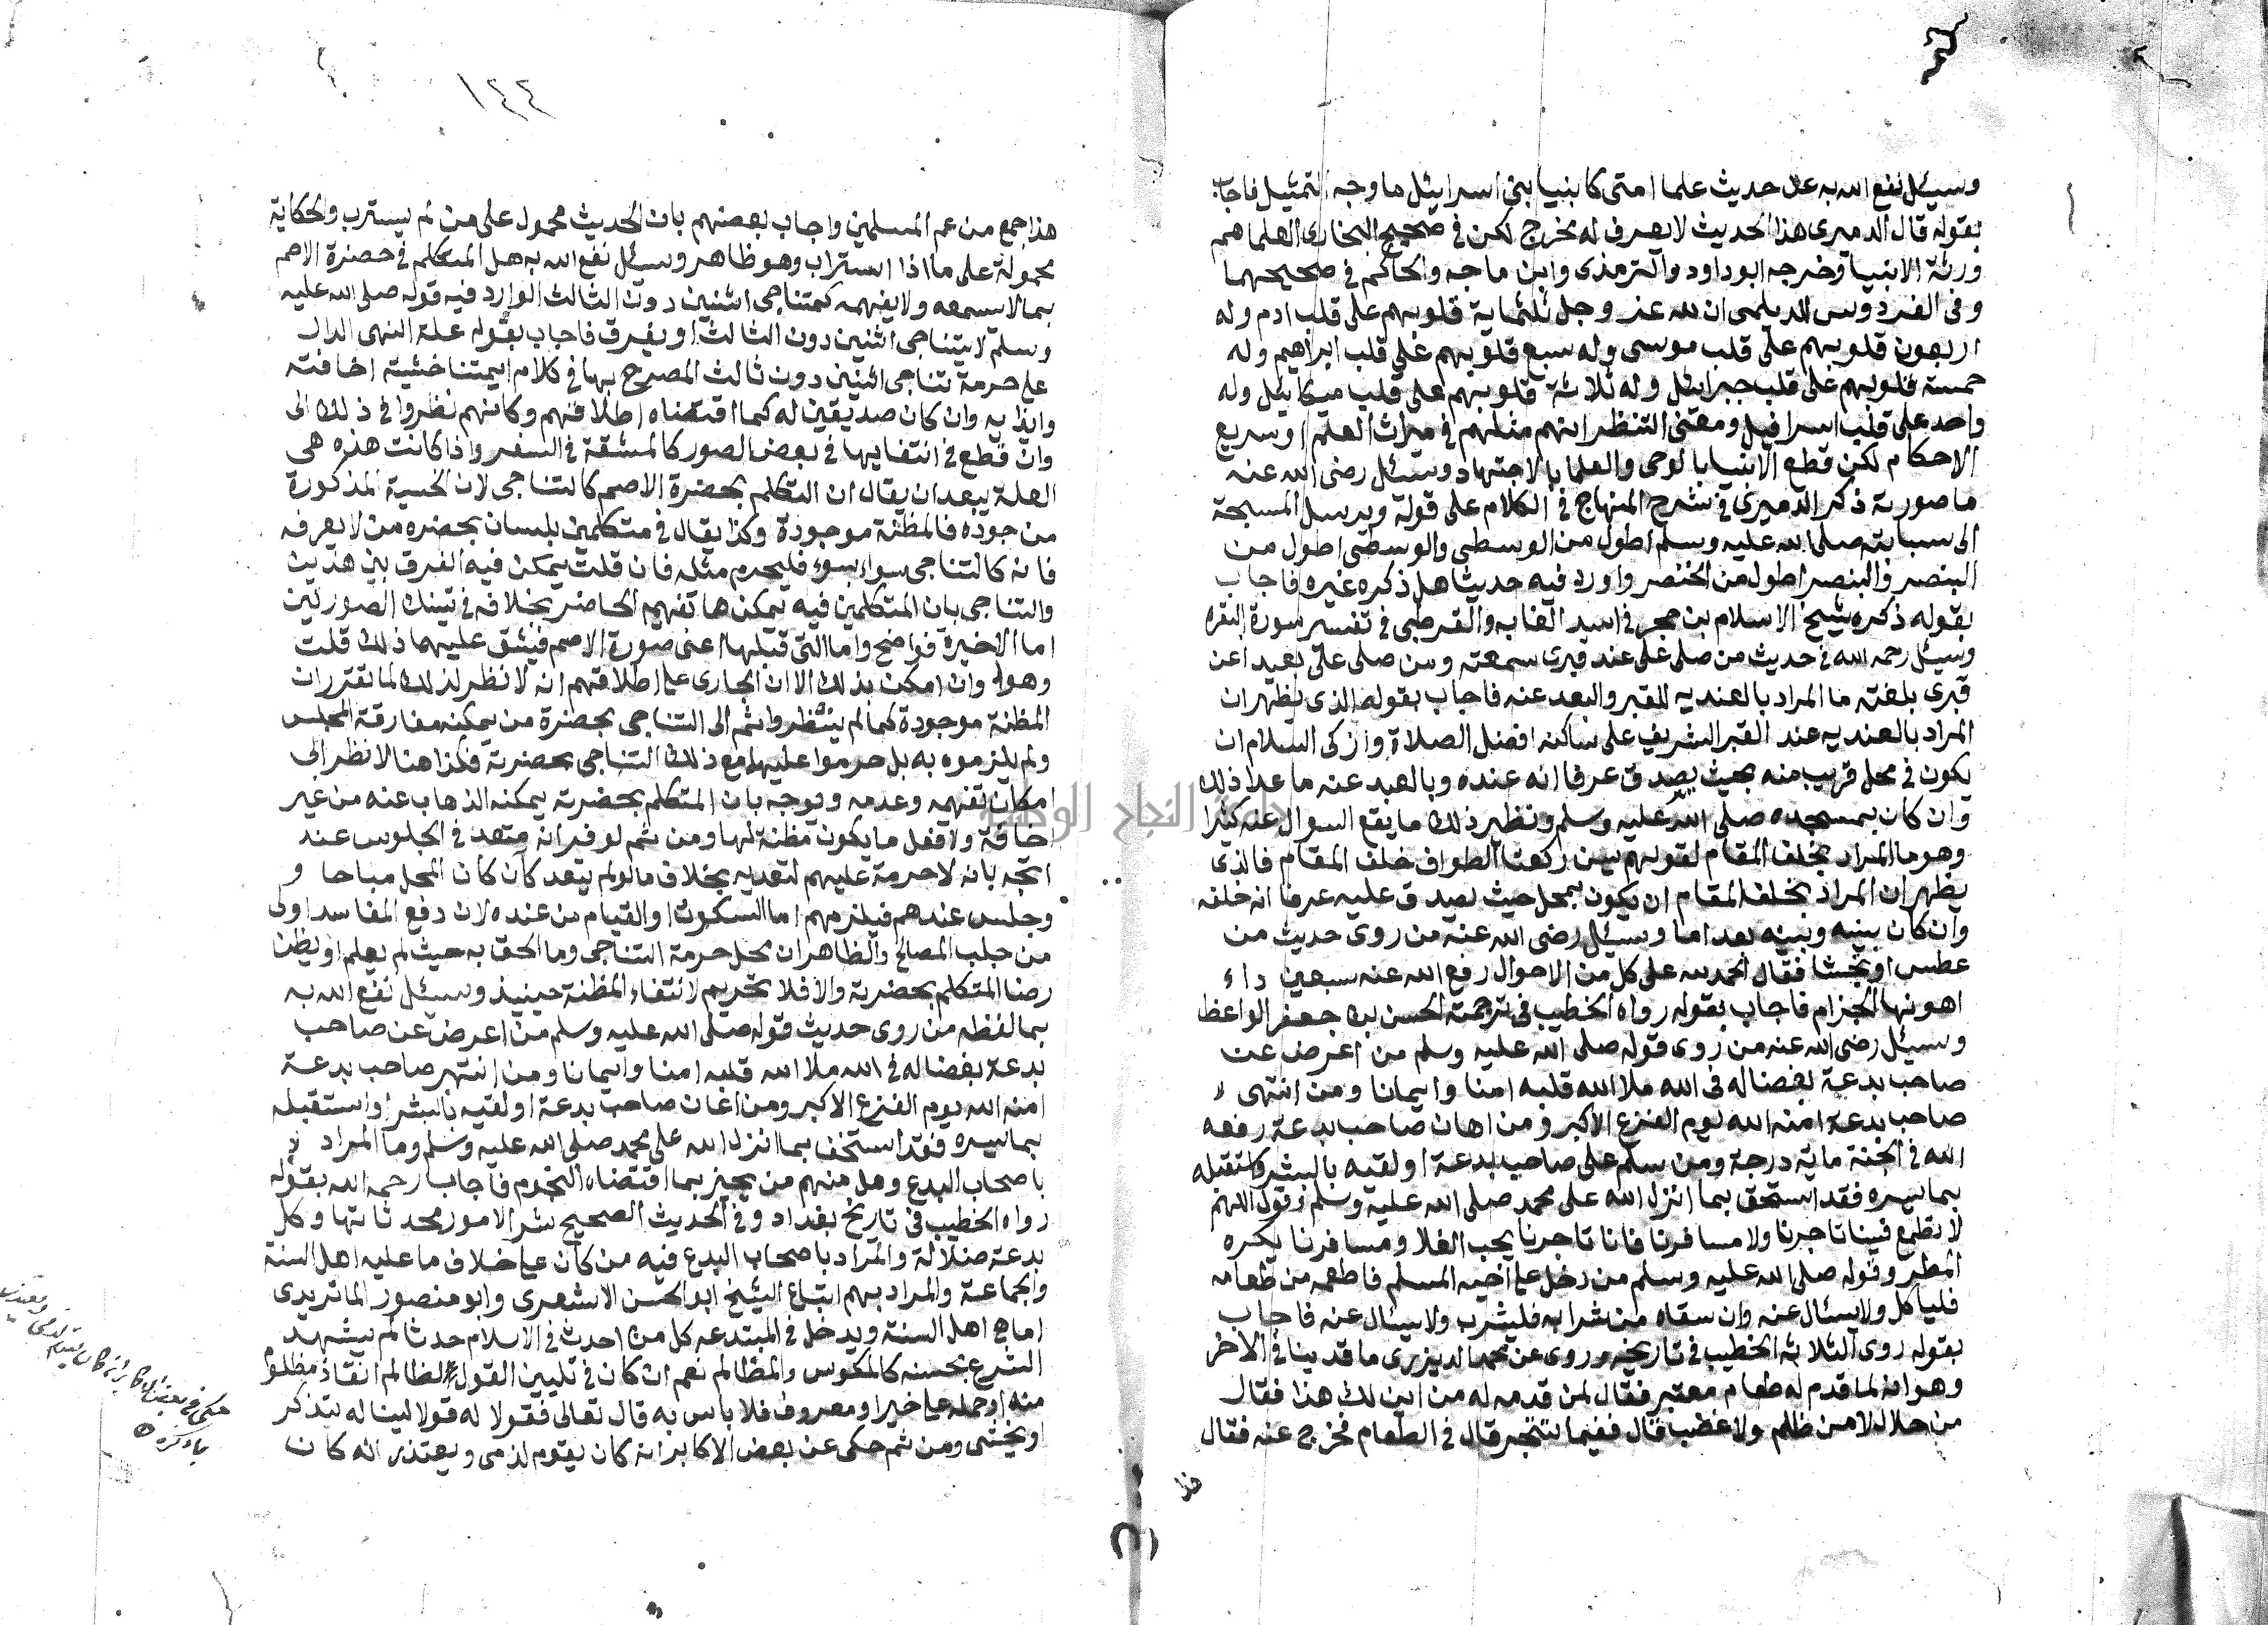 وسيئل نفع الله به عن حديث علما امتي كانبيا بني اسرايئل ما وجه التمثيل فاجاب
بقوله قال الدميري هذا الحديث لا يعرف له مخرج لكن في صحيح البخاري العلما هم
ورثة الانبيا وخرجه ابو داود والترمذي وابن ماجه والحاكم في صحيحهما
وفي الفردوس للديلمي ان لله عز وجل ثلثماية قلوبهم على قلب ادم وله
اربعون قلوبهم على قلب موسى وله سبع قلوبهم على قلب ابراهيم وله
خمسة قلوبهم على قلب جبرايئل وله ثلاثة قلوبهم على قلب ميكايئل وله
واحد على قلب اسرافيل ومعنى التنظير انهم مثلهم في ميراث العلم وسريع
الاحكام لكن قطع الانبيا بالوحي والعلما بالاجتهاد وسيئل رضي الله عنه
ما صورته ذكر الدميري في شرح المنهاج في الكلام على قوله ويرسل المسبحة
الى سبابته صلى الله عليه وسلم اطول من الوسطى والوسطى اطول من
البنصر والبنصر اطول من الخنصر واورد فيه حديثا هل ذكره غيره فاجاب
بقوله ذكره شيخ الاسلام بن حجر في اسد الغابه والقرطبي في تفسير سورة البقره
وسيئل رحمه الله في حديث من صلى علي عند قبري سمعته ومن صلى علي بعيدا عن
قبري بلغته ما المراد بالعنديه للقبر والبعد عنه فاجاب بقوله الذي يظهر ان
المراد بالعنديه عند القبر الشريف على ساكنه افضل الصلاة وازكى السلام ان
يكون في محل قريب منه بحيث يصدق عرفا انه عنده وبالعبد عنه ما عدا ذلك
وان كان بمسجده صلى الله عليه وسلم ونظير ذلك ما يقع السوال عنه كثيرا
وهو ما المراد بخلف المقام لقولهم سن ركعتا الطواف خلف المقام فالذي
يظهر ان المراد بخلف المقام ان يكون بمحل حيث يصدق عليه عرفا انه خلفه
وان كان بينه وبينه بعد اما وسيئل رضي الله عنه من روى حديث من
عطس او تجشا فقال الحمد لله على كل من الاحوال رفع الله عنه سبعين داء
اهونها الجزام فاجاب بقوله رواه الخطيب في ترجمة الحسن بن جعفر الواعظ
وسيئل رضي الله عنه من روى قوله صلى الله عليه وسلم من اعرض عن
صاحب بدعة بغضا له في الله ملا الله قلبه امنا وايمانا ومن انتهى
صاحب بدعة امنه الله يوم الفزع الاكبر ومن اهان صاحب بدعة رفعه
الله في الجنة ماية درجة ومن سلم على صاحب بدعة او لقيه بالبشر واستقبله
بما يسره فقد استحق بما انزل الله على محمد صلى الله عليه وسلم وقوله اللهم
لا تطمع فينا تاجرنا ولا مسافرنا فان تاجرنا يحب الغلا ومسافرنا يكره
المطر وقوله صلى الله عليه وسلم من دخل على اخيه المسلم فاطعمه من طعامه
فلياكل ولا يسئال عنه وان سقاه من شرابه فليشرب ولا يسئال عنه فاجاب
بقوله روى الثلاثة الخطيب في تاريخه وروى عن محمد ما قد ينافي الاخر
وهو انه لما قدم له طعام معتبر فقال لمن قدمه له من اين لك هذا فقال
من حلال لا من ظلم ولا غضب قال ففيما تتجر قال في الطعام فخرج عنه فقال
هذا
١٤٤
هذا جمع من عم المسلمين واجاب بعضهم بان الحديث محمول على من لم يسترب والحكاية
محمولة على ما اذا استراب وهو ظاهر وسيئل نفع الله به هل المتكلم في حضرة الاصم
بما لا يسمعه ولا يفهمه كمتناجي اثنين دون الثالث الوارد فيه قوله صلى الله عليه
وسلم لا يتناجى اثنين دون الثالث او يفرق فاجاب بقوله علة النهي الدال
على حرمة تناجي اثنين دون ثالث المصرح بها في كلام ايمتنا خشية اخافته
وايذايه وان كان صديقين له كما اقتضاه اطلاقهم وكانهم نظروا في ذلك الى
وان قطع في انتفايها في بعض الصور كالمشقة في السفر واذا كانت هذه هي
العلة يبعد ان يقال ان التكلم بحضرة الاصم كالتناجي لان الخسية المذكورة
من جوده فالمظنة موجودة وكذا يقال في متكلمين بلسان بحضره من لا يعرفه
فانه كالتناجي سواء بسوء فليحرم مثله فان قلت يمكن فيه الفرق بين هذين
والتناجي بان المتكلمين فيه يمكن ها تفهيم الحاضر بخلافه في تينك الصورتين
اما الاخيرة فواضح واما التي قبلها اعني صورة الاصم فيشق عليهما ذلك قلت
وهو وان امكن بذلك الا ان الجاري على اطلاقهم انه لا نظر لذلك لما تقرر ان
المظنة موجودة كما لم ينظروا ثم الى التناجي بحضرة من يمكنه مفارقة المجلس
ولم يلزموه به بل حرموا عليهما مع ذلك التناجي بحضرته فكذا هنا لا نظر الى
امكان تفهيمه وعدمه ويوجه بان المتكلم بحضرته يمكنه الذهاب عنه من غير
خافة ولا فعل ما يكون مظنة لها ومن ثم لو فر انه متعد في الجلوس عند
اتجه بانه لا حرمة عليهم لتعديه بخلاف ما لو لم يتعد كان كان المحل مباحا و
وجلس عندهم فيلزمهم اما السكوت او القيام من عنده لان دفع المفاسد اولى
من جلب المصالح والظاهر ان محل حرمة التناجي وما الحق به حيث لم يعلم او يظن
رضا المتكلم بحضرته والا فلا تحريم لانتفاء المظنة حينيذ وسيئل نفع الله به
بما لفظه من روى حديث قوله صلى الله عليه وسلم من اعرض عن صاحب
بدعة بغضا له في الله ملا الله قلبه امنا وايمانا ومن انتهر صاحب بدعة
امنه الله يوم الفزع الاكبر ومن اغان صاحب بدعة او لقيه بالبشر او استقبله
بما يسره فقد استخف بما انزل الله على محمد صلى الله عليه وسلم وما المراد
باصحاب البدع وهل منهم من يجيز بما اقتضاه النجوم فاجاب رحمه الله بقوله
رواه الخطيب في تاريخ بغداد وفي الحديث الصحيح شر الامور محدثاتها وكل
بدعة ضلالة والمراد باصحاب البدع فيه من كان على خلاف ما عليه اهل السنة
والجماعة والمراد بهم اتباع الشيخ ابو الحسن الاشعري وابو منصور الماتريدي
اماما اهل السنة ويدخل في المبتدعه كل من احدث في الاسلام حدثا لم يشهد
الشرع بحسنه كالمكوس والمظالم نعم ان كان في تليين القول لظالم انقاذ مظلوم
منه او حمله على خير او معروف فلا باس به قال تعالى فقولا له قولا لينا له يتذكر
او يخشى ومن ثم حكي عن بعض الاكابر انه كان يقوم لذمي ويعتذر انه كان
حكى في بعض الاكابر انه كان يقوم لذمي ويعتذر